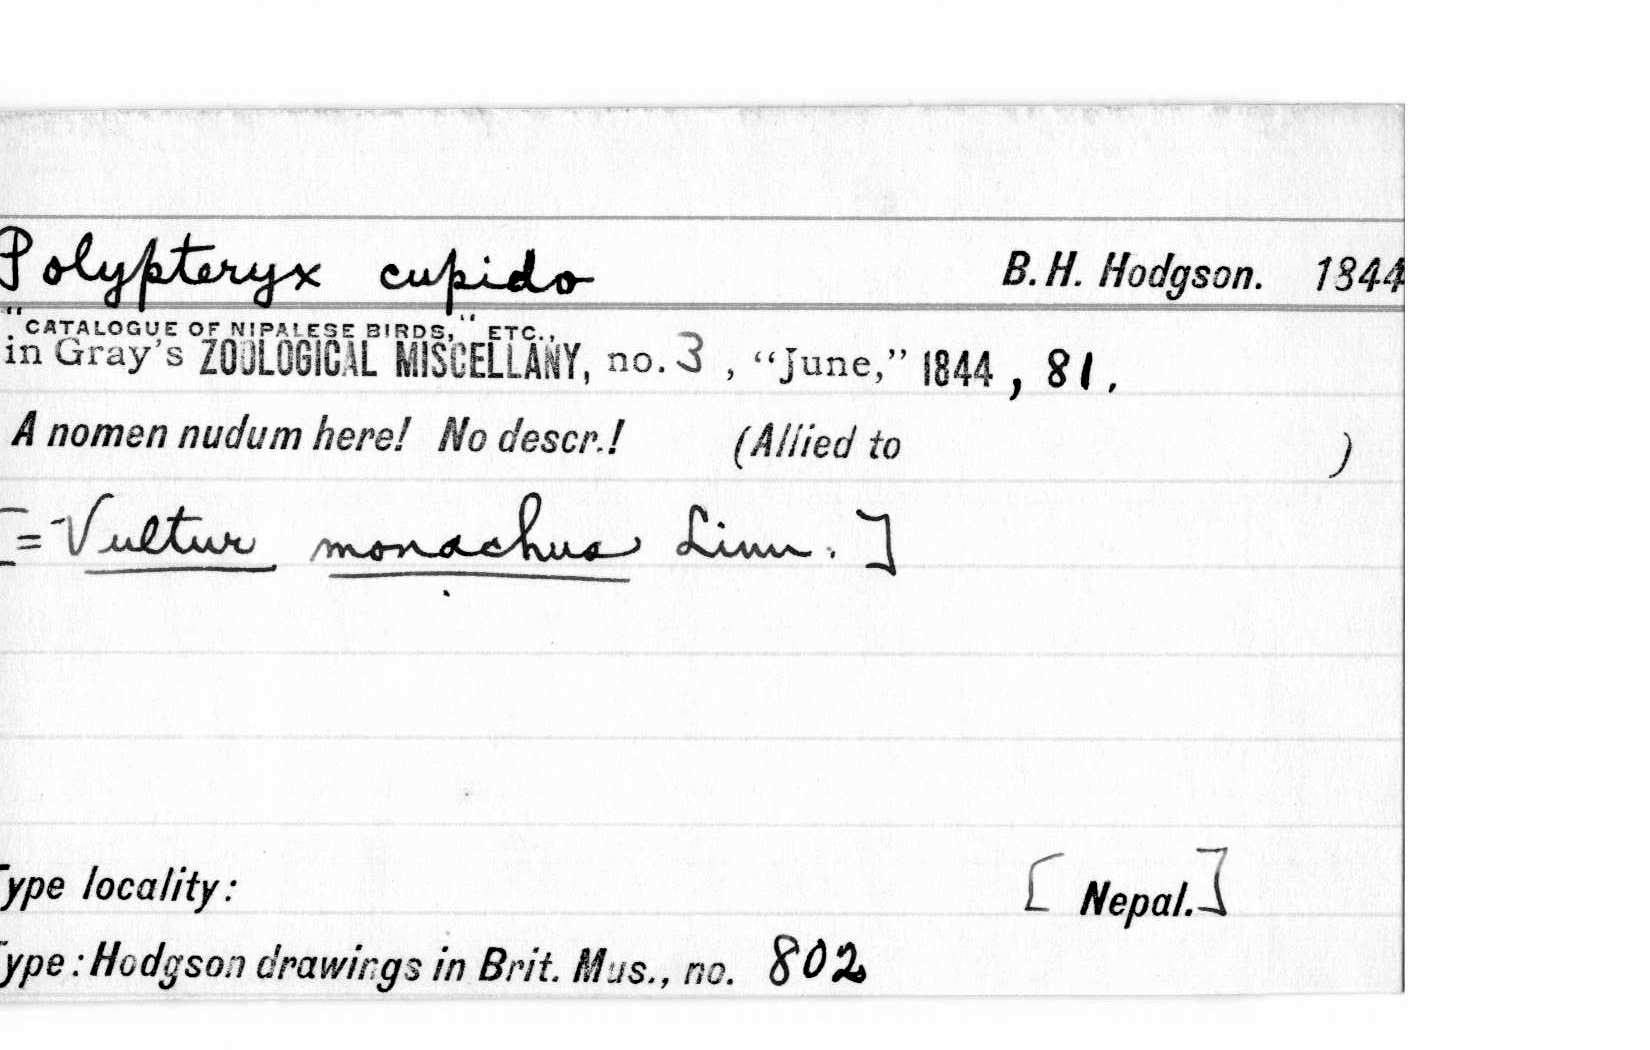 Polypteryx cupido B.H. Hodgson. 1844
"CATALOGUE OF NIPALESE BIRDS," ETC.,
in Gray's ZOOLOGICAL MISCELLANY, no. 3, "June," 1844, 81.
A nomen nudum here! No descr.! (Allied to )
[= Vultur monachus Linn.]
Type locality: [Nepal.]
Type: Hodgson drawings in Brit. Mus., no. 802